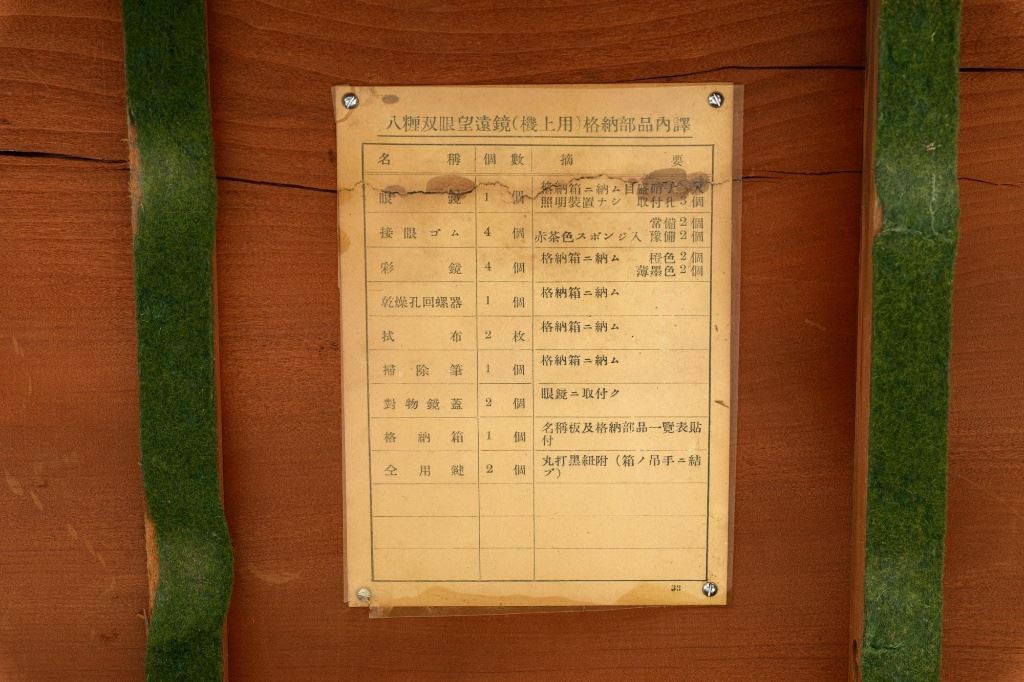 八糎双眼望遠鏡(機上用)格納部品內譯
名稱 個數 摘要
眼鏡 1個 格納箱ニ納ム
照明裝置ナシ 取付孔3個
接眼ゴム 4個 常備2個
赤茶色スポンジ入 豫備2個
彩鏡 4個 格納箱ニ納ム 橙色2個
薄墨色2個
乾燥孔回螺器 1個 格納箱ニ納ム
拭布 2枚 格納箱ニ納ム
掃除筆 1個 格納箱ニ納ム
對物鏡蓋 2個 眼鏡ニ取付ク
格納箱 1個 名稱板及格納部品一覽表貼
付
仝用鍵 2個 丸打黑紐附(箱ノ吊手ニ結
ブ)
33